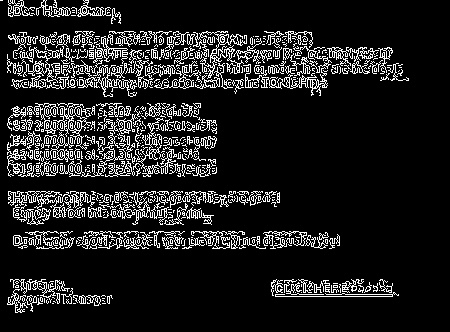 Dear Home Owner,
Your credit doesn't matter to us! If you OWN real estate
and want IMMEDIATE cash to spend ANY way you like, or simply want
to LOWER your monthly payments by a third or more, here are the deals
we have TODAY (hurry these offers will expire TONIGHT):
$488,000.00 at 3.67% fixed-rate
$372,000.00 at 3.90% variable-rate
$492,000.00 at 3.21% interest-only
$248,000.00 at 3.36% fixed-rate
$198,000.00 at 3.55% variable-rate
Hurry, when these deals are gone, they are gone!
Simply fill out this one-minute form...
Don't worry about approval, your credit will not disqualify you!
Approval Manager
CLICK HERE